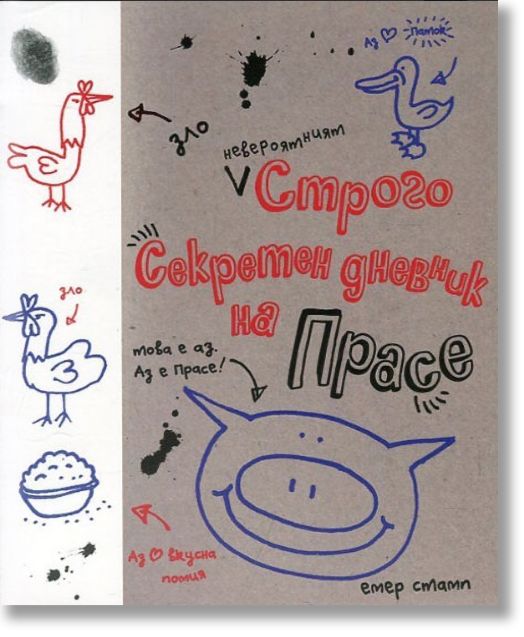 Аз ♡ Паток
зло
невероятният
V Строго
Секретен дневник
на Прасе
зло
това е аз.
Аз е Прасе!
Аз ♡ вкусна
помия
емер стамп